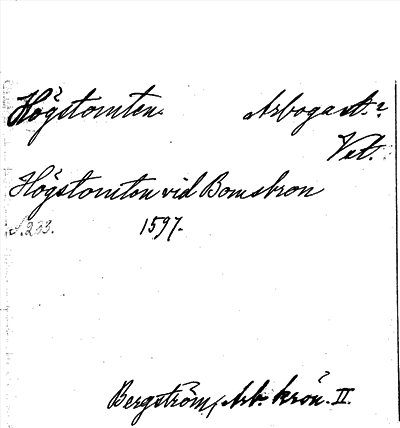 Högstomten. Arboga st.?
Vst.
Högstomton vid Bomskron
S. 233. 1597.
Bergström, Arb. krön. II.